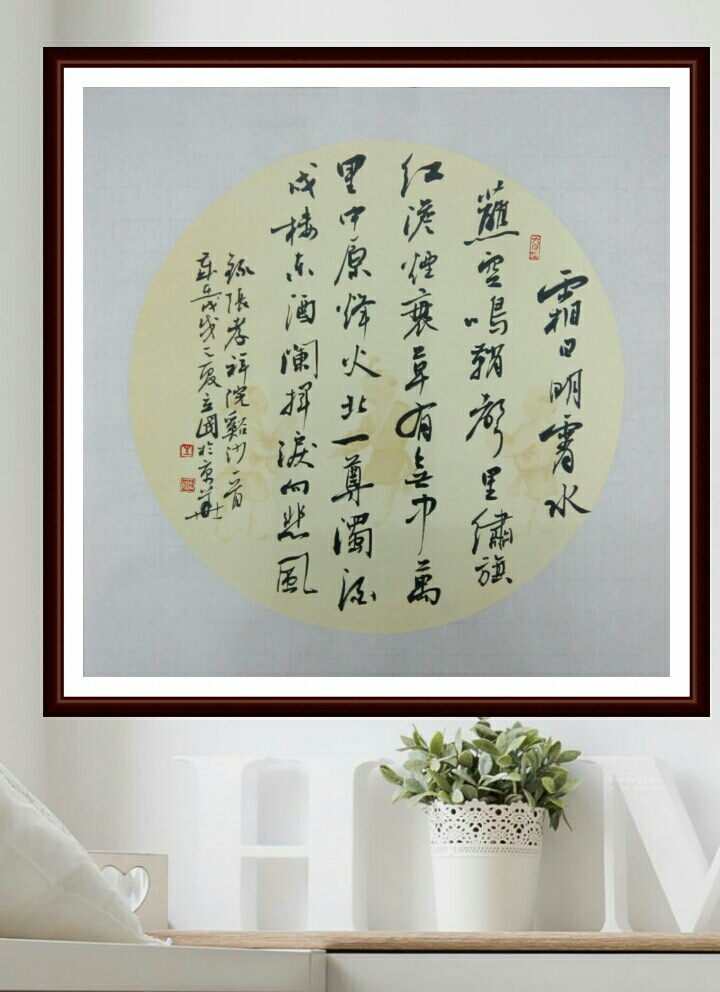 霜日明霄水
蘸空鳴鞘聲里繡旗
紅澹煙衰草有無中萬
里中原烽火北一尊濁酒
戍樓东酒闌揮淚向悲風
錄張孝祥浣谿沙一首
歲在戊戌之夏立國於京華
HOM